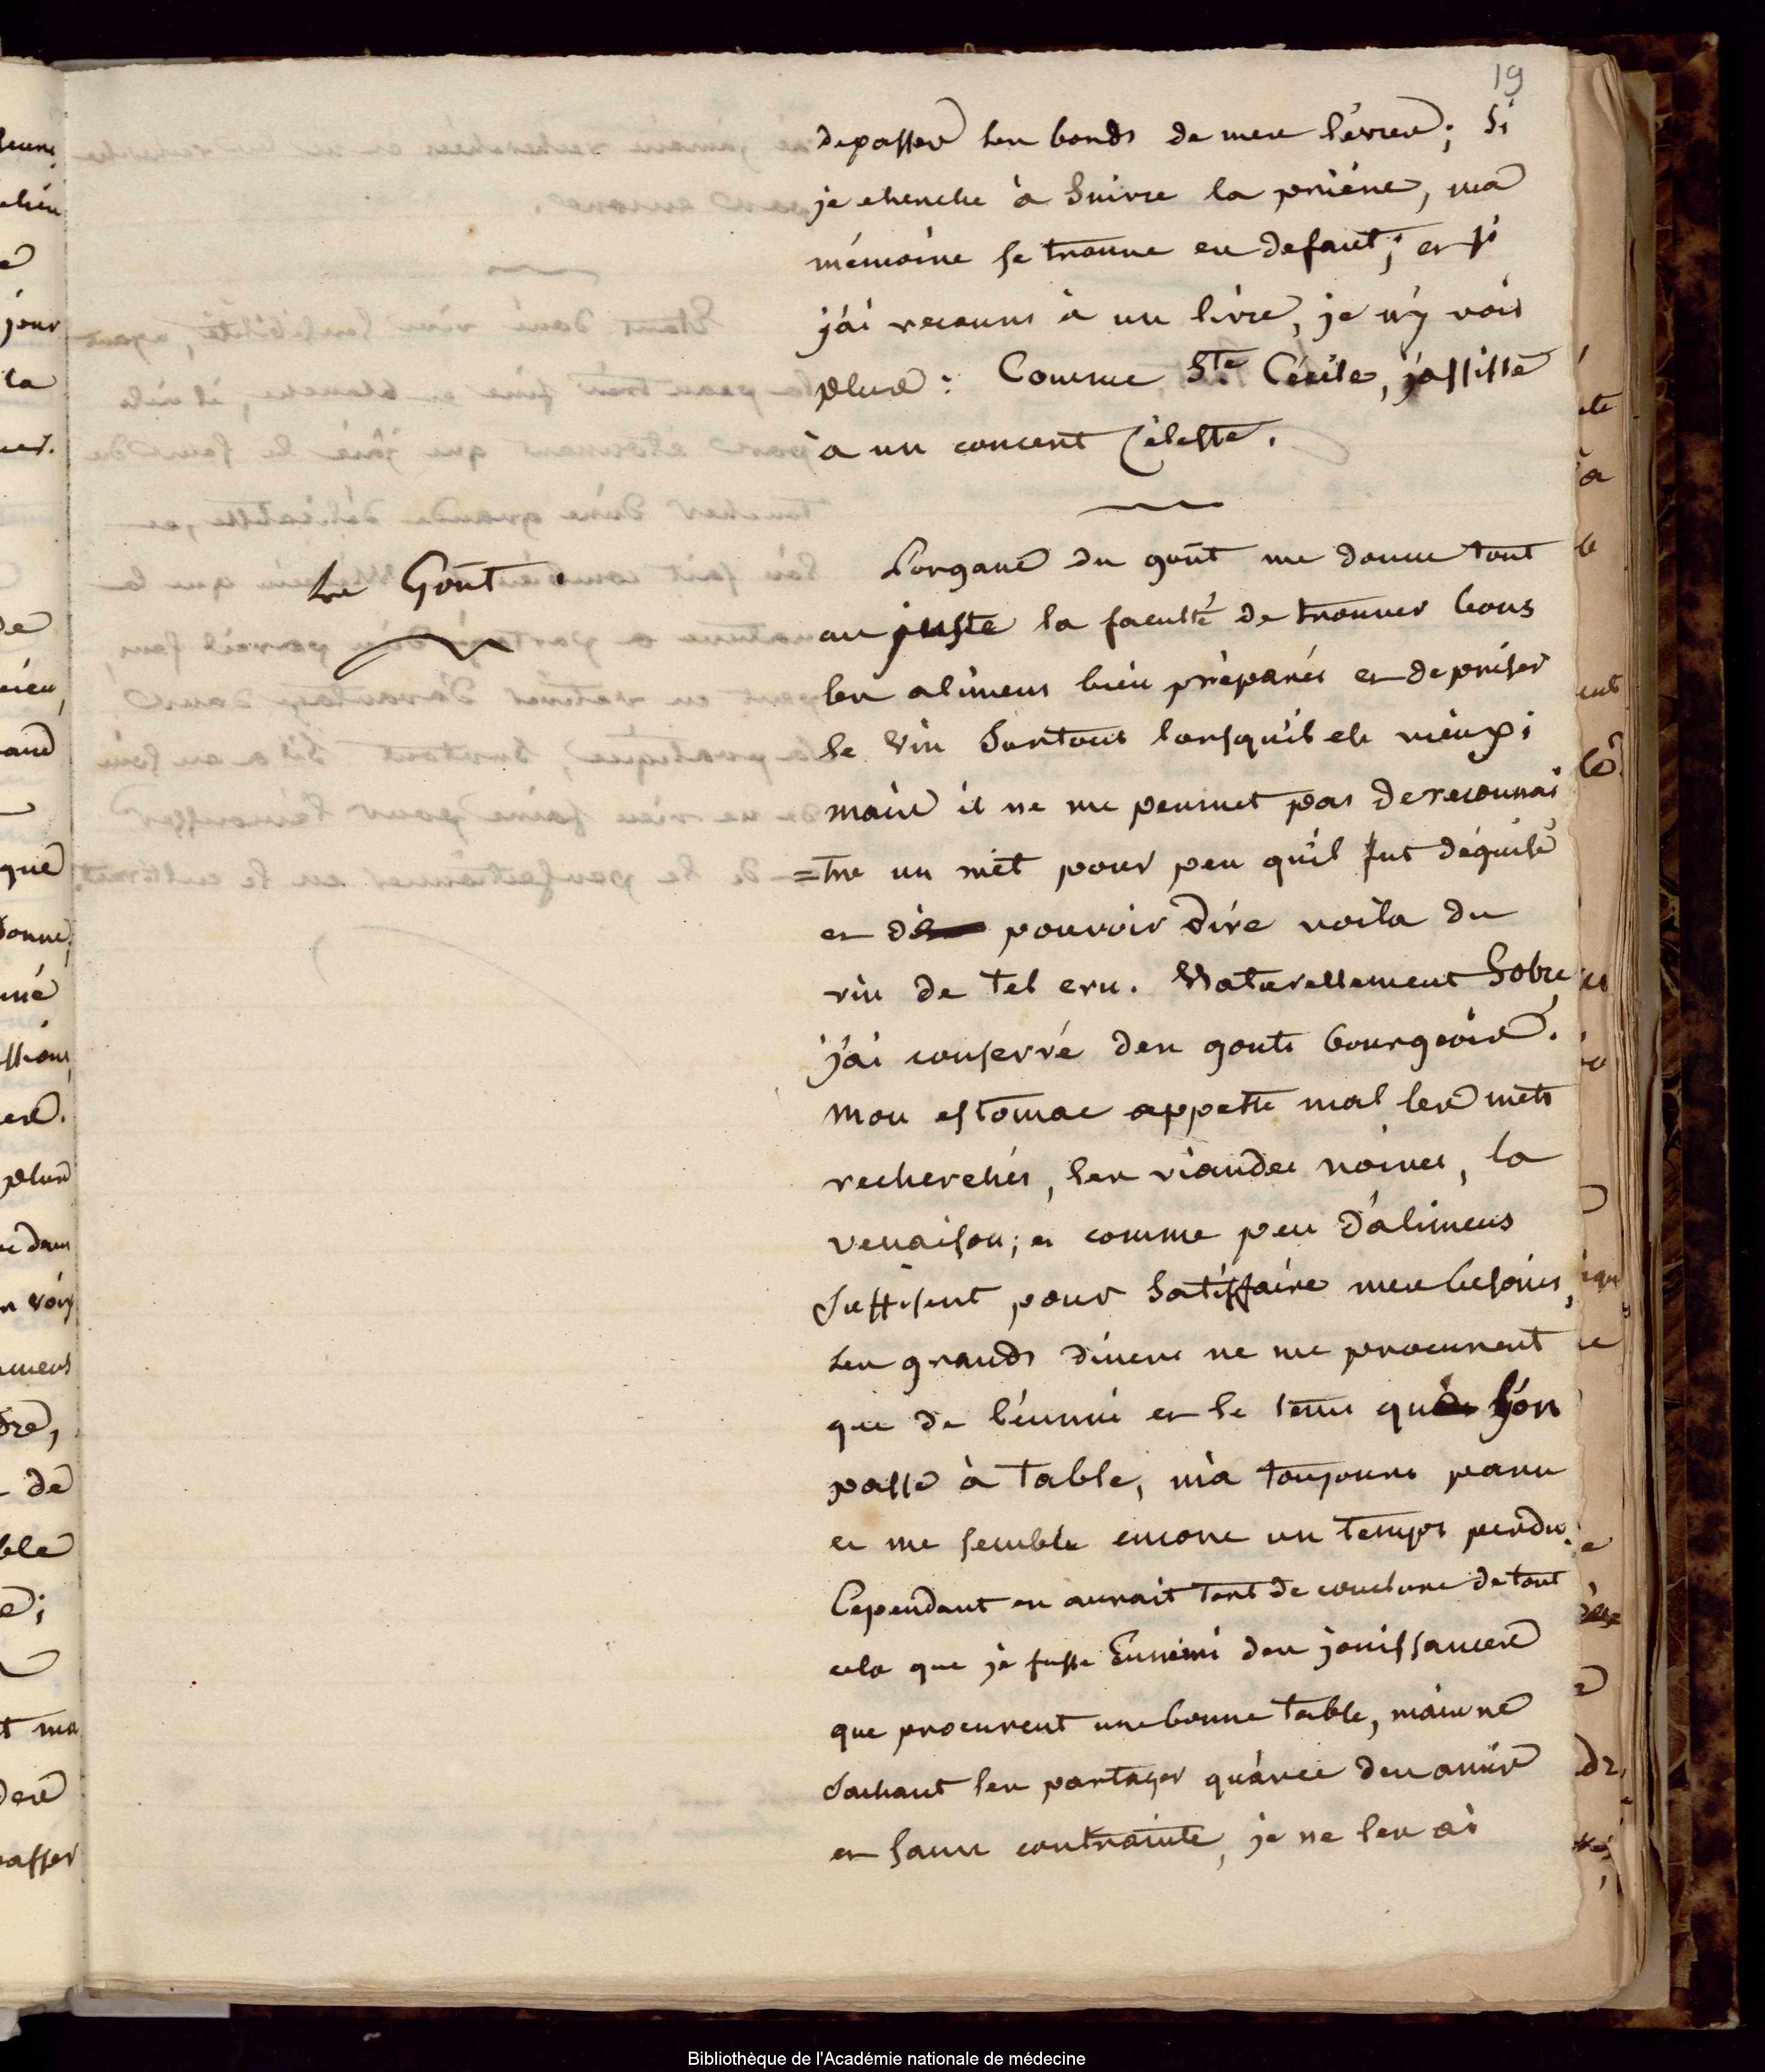 19
depasser les bords de mes lévres; Si
je cherche à Suivre la priére, ma
mémoire se trouve en defaut; et si
j'ai recours à un livre, je n'y vois
plus: Comme Ste Cécile, j'assiste
à un concert Céleste.
Le Goût.
L'organe du goût me donne tout
au juste la faculté de trouver bons
les alimens bien préparés et de priser
le vin Surtout lorsqu'il est vieux;
mais il ne me permet pas de reconnai
=tre un mêt pour peu qu'il fut déguisé
et de pouvoir dire voila du
vin de tel cru. Naturellement Sobre
j'ai conservé des gouts bourgeois.
mon estomac appette mal les mets
recherchés, les viandes noires, la
venaison; et comme peu d'alimens
Suffisent pour Satisfaire mes besoins,
les grands diners ne me procurent
que de l'ennui et le tems que l'on
passe à table, m'a toujours paru
et me semble encore un temps perdu.
Cependant on aurait tort de conclure de tout
cela que je fusse Ennemi des jouissances
que procurent une bonne table, mais ne
Sachant les partager qu'avec des amis
et sans contrainte, je ne les ai
Bibliothèque de l'Académie nationale de médecine